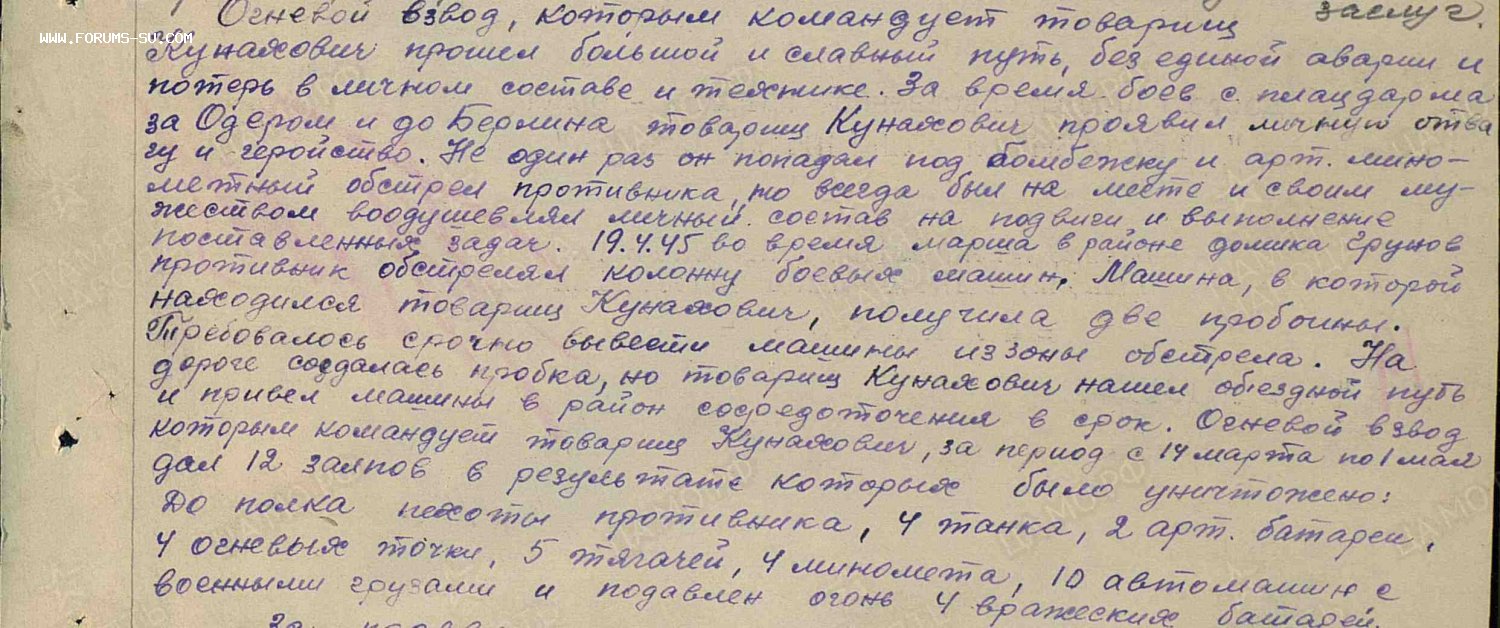 заслуг.
Огневой взвод, которым командует товарищ
WWW.FORUMS-SU.COM
Кунахович прошел большой и славный путь, без единой аварии и
потерь в личном составе и технике. За время боев с плацдарма
за Одером и до Берлина товарищ Кунахович проявил личную отва
гу и геройство. Не один раз он попадал под бомбежку и арт. мино-
метный обстрел противника, но всегда был на месте и своим му-
жеством воодушевлял личный состав на подвиги и выполнение
поставленных задач. 19.4.45 во время марша в районе домика Грунов
противник обстрелял колонну боевых машин. Машина, в которой
находился товарищ Кунахович, получила две пробоины.
Требовалось срочно вывести машины из зоны обстрела. На
дороге создалась пробка, но товарищ Кунахович нашел объездной путь
и привел машины в район сосредоточения в срок. Огневой взвод
которым командует товарищ Кунахович, за период с 14 марта по 1 мая
дал 12 залпов в результате которых было уничтожено:
До полка пехоты противника, 4 танка, 2 арт. батареи,
4 огневых точки, 5 тягачей, 4 миномета, 10 автомашин с
военными грузами и подавлен огонь 4 вражеских батарей.
За